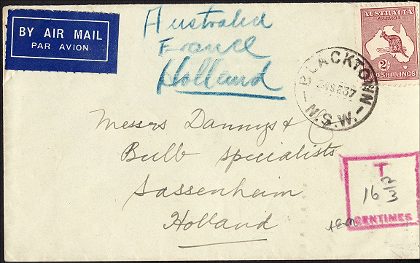 BY AIR MAIL
PAR AVION
Australia
France
Holland
AUSTRALIA
2
SHILLINGS
BLACKTOWN
N.S.W.
Messrs Dannys &
Bulb Specialists
Sassenheim
Holland
T
16
CENTIMES